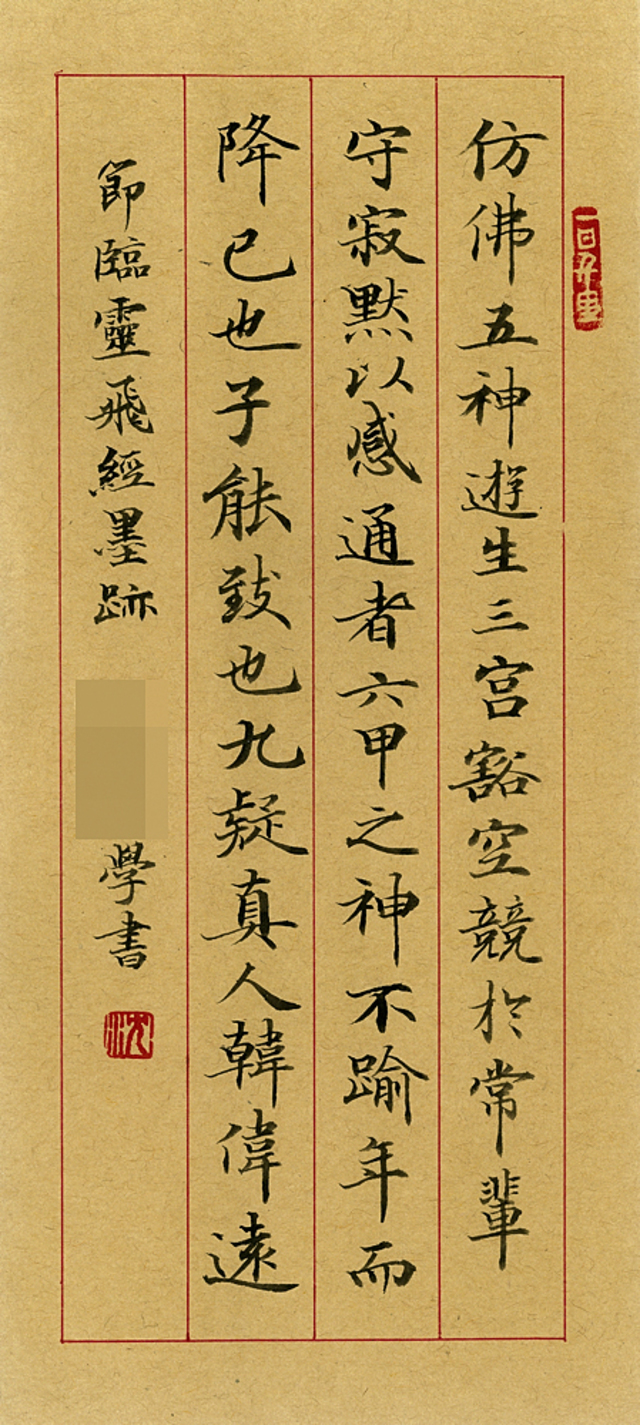 仿佛五神遊生三宮豁空競於常輩
守寂默以感通者六甲之神不踰年而
降已也子能致也九疑真人韓偉遠
節臨靈飛經墨跡
學書
沈